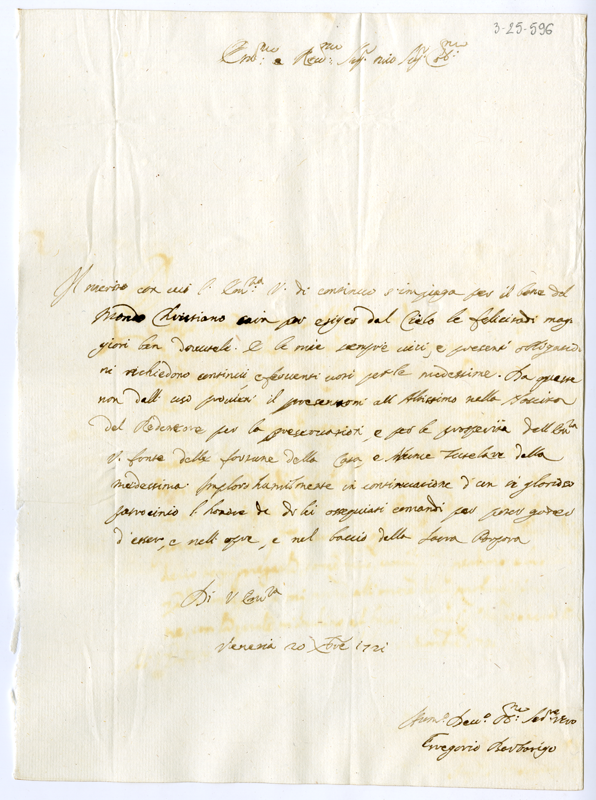 3-25-596
Em:mo e Rev:mo Sig.r mio Sig.r Ob:mo
Il merito con cui l' Em:za V. di continuo s'impiega per il bene del
Mondo Christiano esiger dal Cielo le felicità mag
giori ben dovutele. E le mie sempre vive, e presenti obligationi
richiedono continui, e ferventi voti per le medesime. Da queste
non dall' uso proviene il presentarmi all' Altissimo nella Nascita
del Redentore per la preservatione, e per le prosperità dell' Em:za
V. fonte delle fortune della Casa, e Nume Tutelare della
medesima. Imploro humilmente in continuatione d'un sì glorioso
patrocinio l' honore de di lei ossequiati comandi per poter godere
d'esser, e nell' opre, e nel baccio della Sacra Porpora
Di V. Em:za
Venezia 20 Xbre 1721
Hum:o Dev:o Ob:mo Ser:re vero
Gregorio Barbarigo